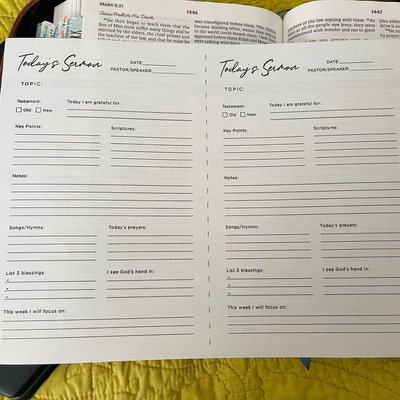 MARK 8:31
1446
1447
Jesus Predicts His Death
He then began to teach them that the
Son of Man must suffer many things and
be rejected by the elders, the chief priests
and the teachers of the law, and that he must be
was transfigured before them. His
became dazzling white, whiter than
in the world could bleach them. And
appeared before them Elijah and Moses
of the law arguing with them.
as all the people saw Jesus, they were
overwhelmed with wonder and ran to greet
Today's Sermon
DATE:
PASTOR/SPEAKER:
TOPIC:
Testament:
Today I am grateful for:
Old
New
Key Points:
Scriptures:
Notes:
Songs/Hymns:
Today's prayers:
List 3 blessings:
I see God's hand in:
This week I will focus on:
Today's Sermon
DATE:
PASTOR/SPEAKER:
TOPIC:
Testament:
Today I am grateful for:
Old
New
Key Points:
Scriptures:
Notes:
Songs/Hymns:
Today's prayers:
List 3 blessings:
I see God's hand in:
This week I will focus on: